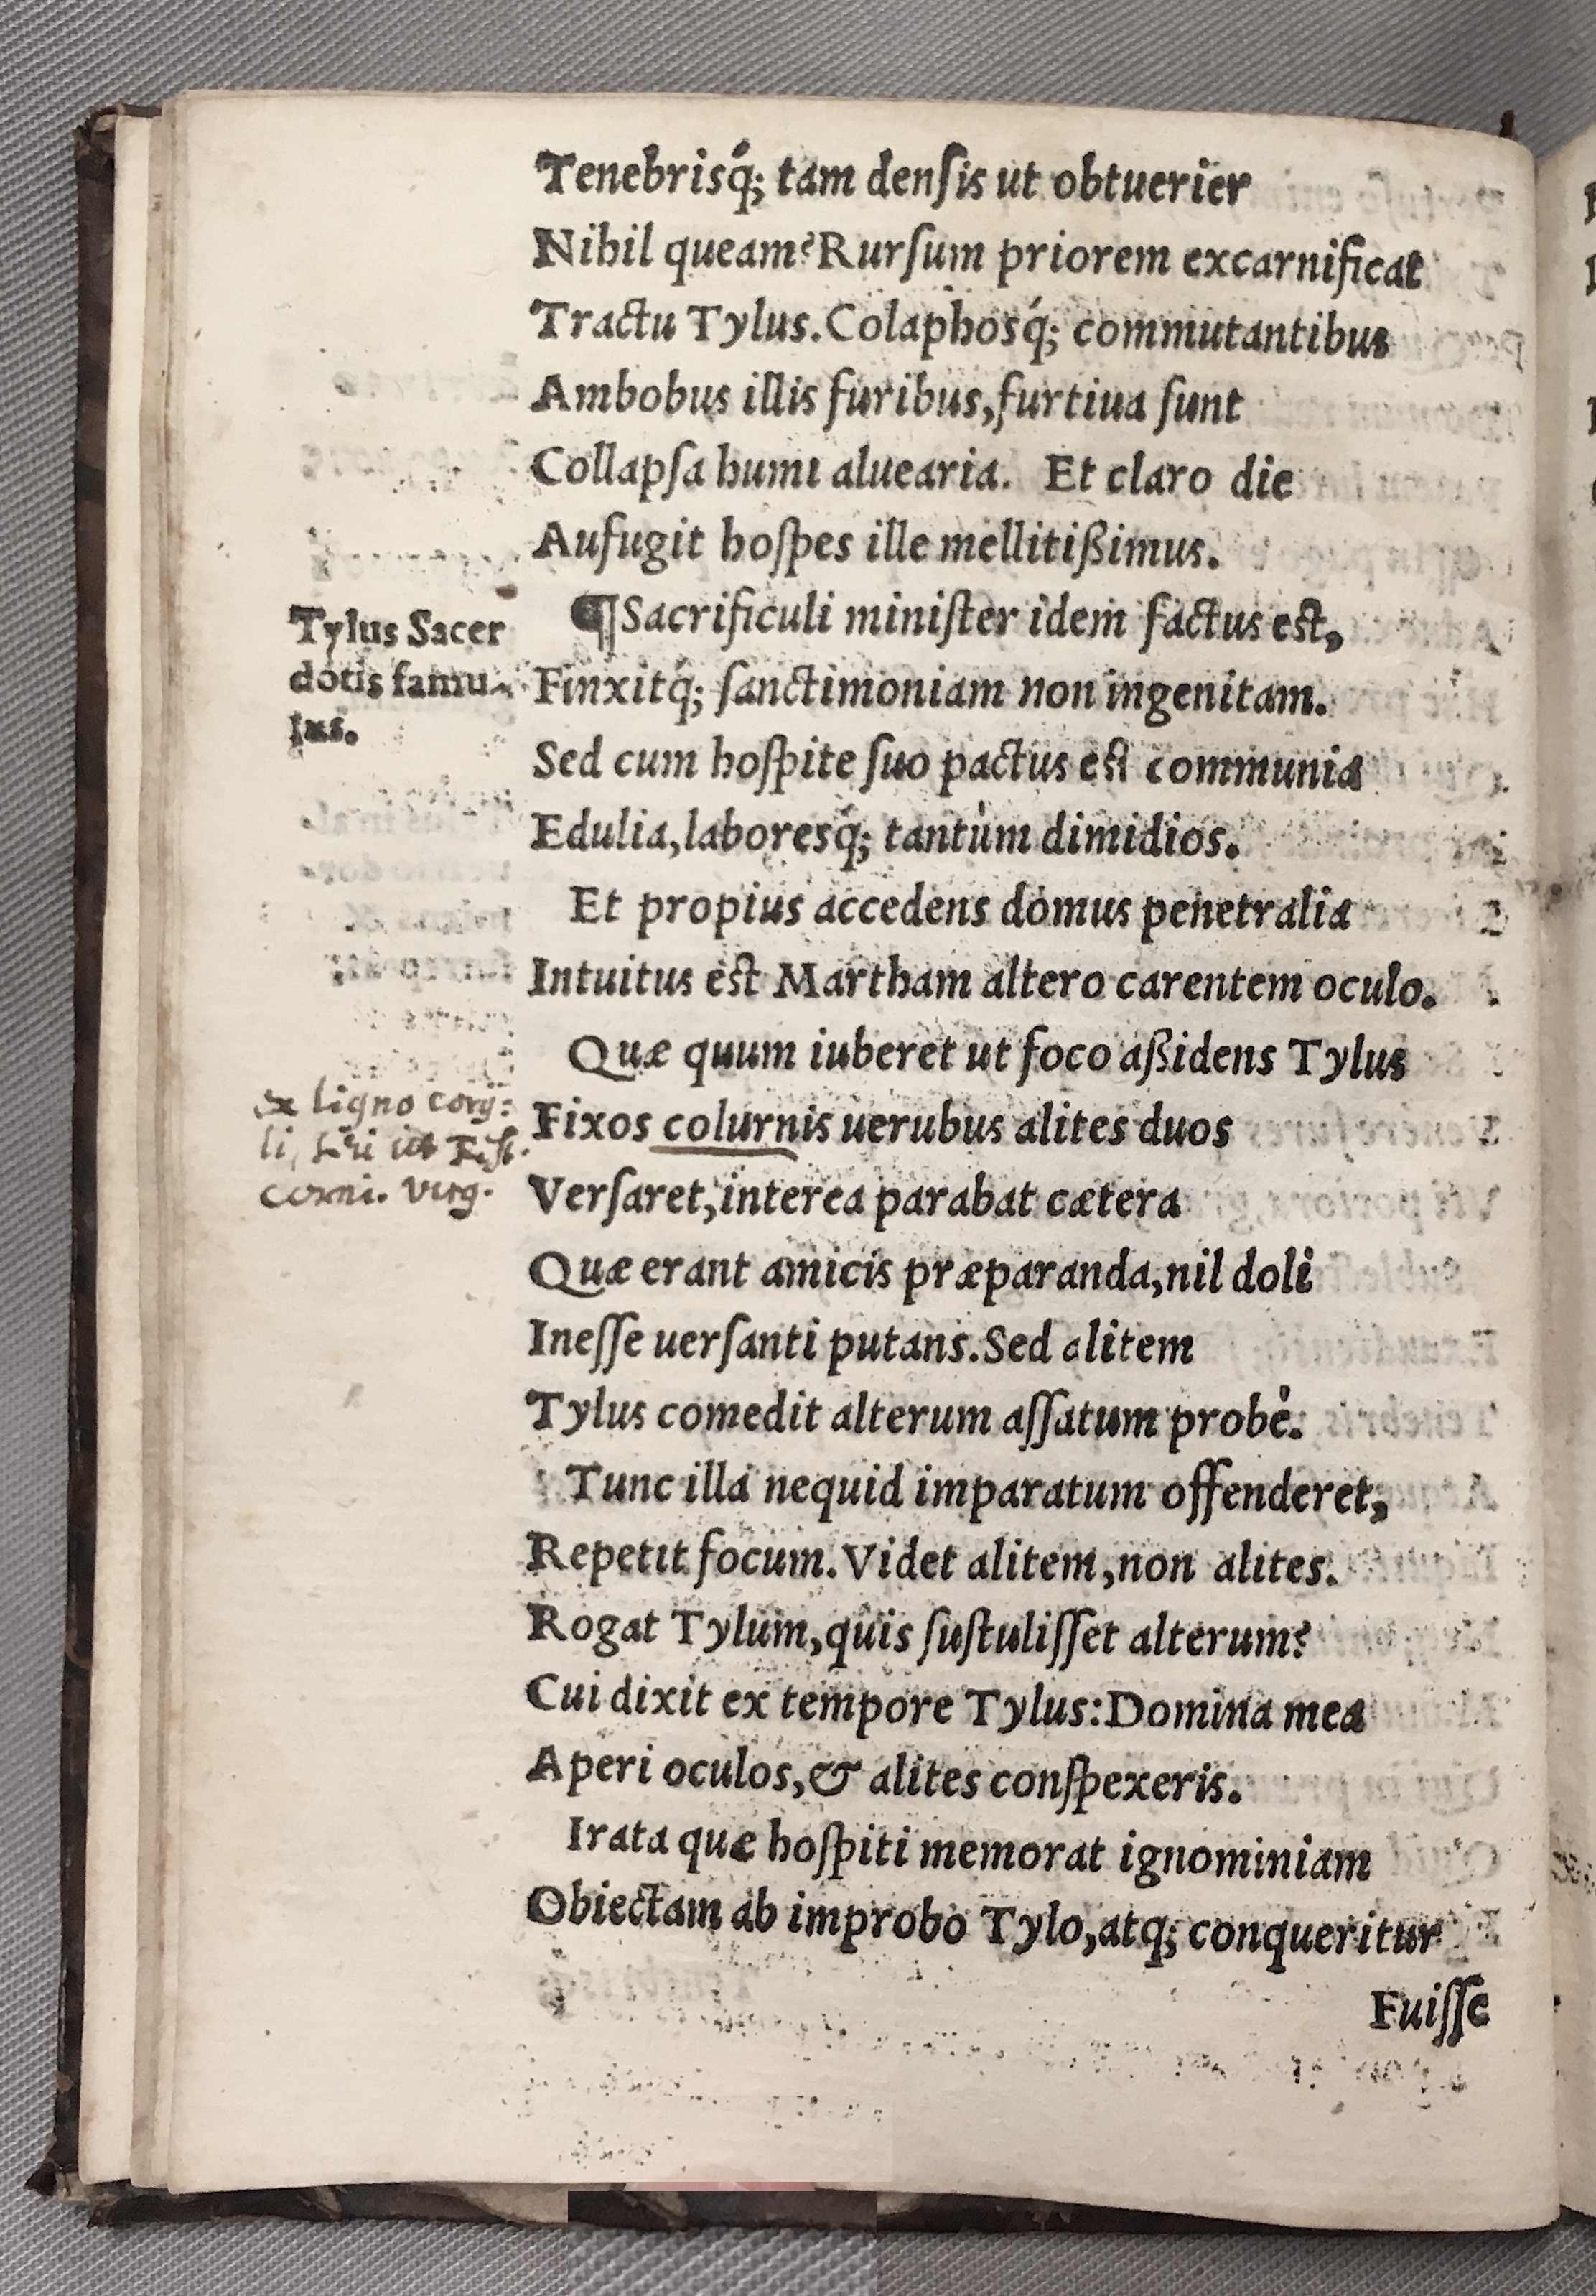 Tenebrisq́; tam denſis ut obtuerier
Nihil queam? Rurſum priorem excarnificat
Tractu Tylus. Colaphosq́; commutantibus
Ambobus illis furibus, furtiua ſunt
Collapſa humi aluearia. Et claro die
Aufugit hoſpes ille mellitißimus.
¶ Sacrificuli miniſter idem factus eſt,
Tylus Sacer
dotis famu-
lus.
Finxitq́; ſanctimoniam non ingenitam.
Sed cum hoſpite ſuo pactus eſt communia
Edulia, laboresq́; tantùm dimidios.
Et propius accedens domus penetralia
Intuitus eſt Martham altero carentem oculo.
Quæ quum iuberet ut foco aßidens Tylus
ex ligno cory:
li,
corni. virg.
Fixos colurnis uerubus alites duos
Verſaret, interea parabat cætera
Quæ erant amicis præparanda, nil doli
Ineſſe uerſanti putans. Sed alitem
Tylus comedit alterum aſſatum probè.
Tunc illa nequid imparatum offenderet,
Repetit focum. Videt alitem, non alites.
Rogat Tylum, quis ſuſtuliſſet alterum?
Cui dixit ex tempore Tylus: Domina mea
Aperi oculos, & alites conſpexeris.
Irata quæ hoſpiti memorat ignominiam
Obiectam ab improbo Tylo, atq; conqueritur
Fuiſſe